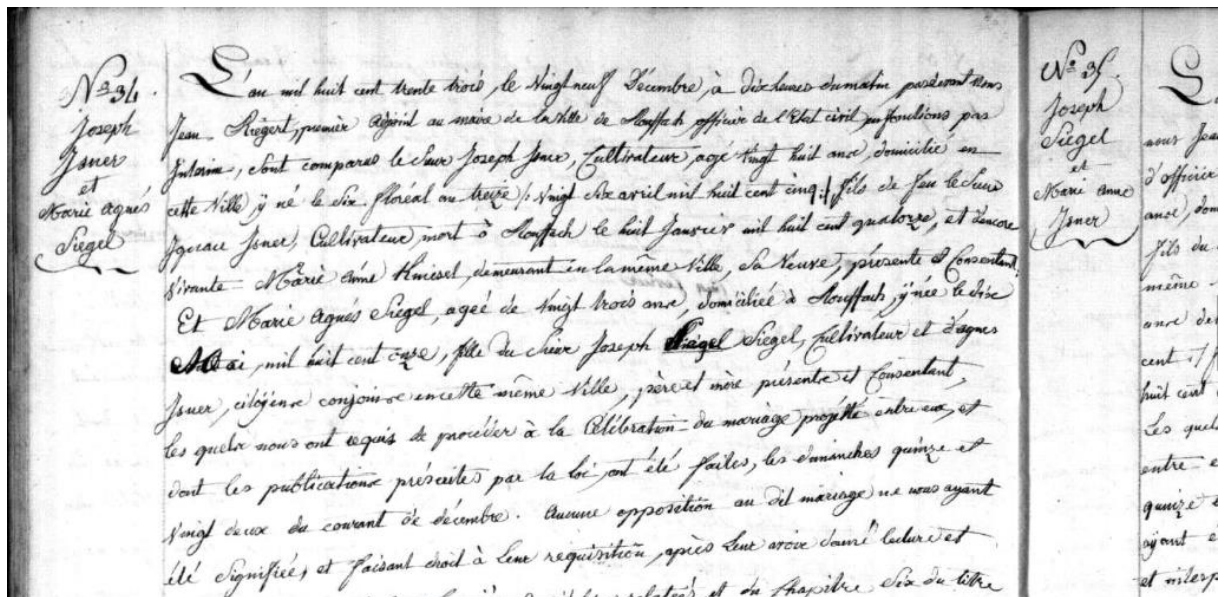 Nº 34.
Joseph
Isner
et
Marie Agnés
Siegel
L'an mil huit cent trente trois, le Vingt neuf Décembre, à dix heures du matin, pardevant Nous
Jean Riegert, premier adjoint au maire de la Ville de Rouffach officier de l'Etat civil, en fonctions par
Interim, sont comparus le Sieur Joseph Isner, Cultivateur, agé vingt huit ans, domicilié en
cette Ville, y né le Six floréal an treize /: Vingt Six avril mil huit cent cinq :/ fils de feu le Sieur
Ignace Isner, Cultivateur, mort à Rouffach le huit Janvier mil huit cent quatorze, et d'encore
vivante Marie Anne Kmisel, demeurant en la même Ville, sa Veuve, présente et Consentant.
Et Marie Agnés Siegel, agée de vingt trois ans, domiciliée à Rouffach, y née le dix
Mai, mil huit cent onze, fille du Sieur Joseph Siegel, Cultivateur et d'agnes
Isner, citoyens conjoints en cette même Ville, père et mère présents et Consentant,
les quels nous ont requis de procéder à la Célébration du mariage projetté entre eux, et
dont les publications préscrites par la loi, ont été faites, les dimanches quinze et
vingt deux du courant de décembre. Aucune opposition au dit mariage ne nous ayant
été Signifiée, et faisant droit à leur requisition, après leur avoir donné lecture et
et du chapitre Six du titre
Nº 35.
Joseph
Siegel
et
Marie Anne
Isner
nous Jean
d'officier
ans, dom
fils du
même
ans de
cent
huit cent
Les quels
entre e
quinze e
ayant e
et interp